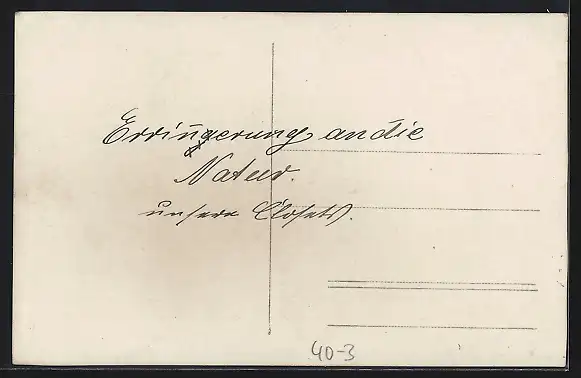 Erringerung an die
Natur.
unsere Closets.
40-3